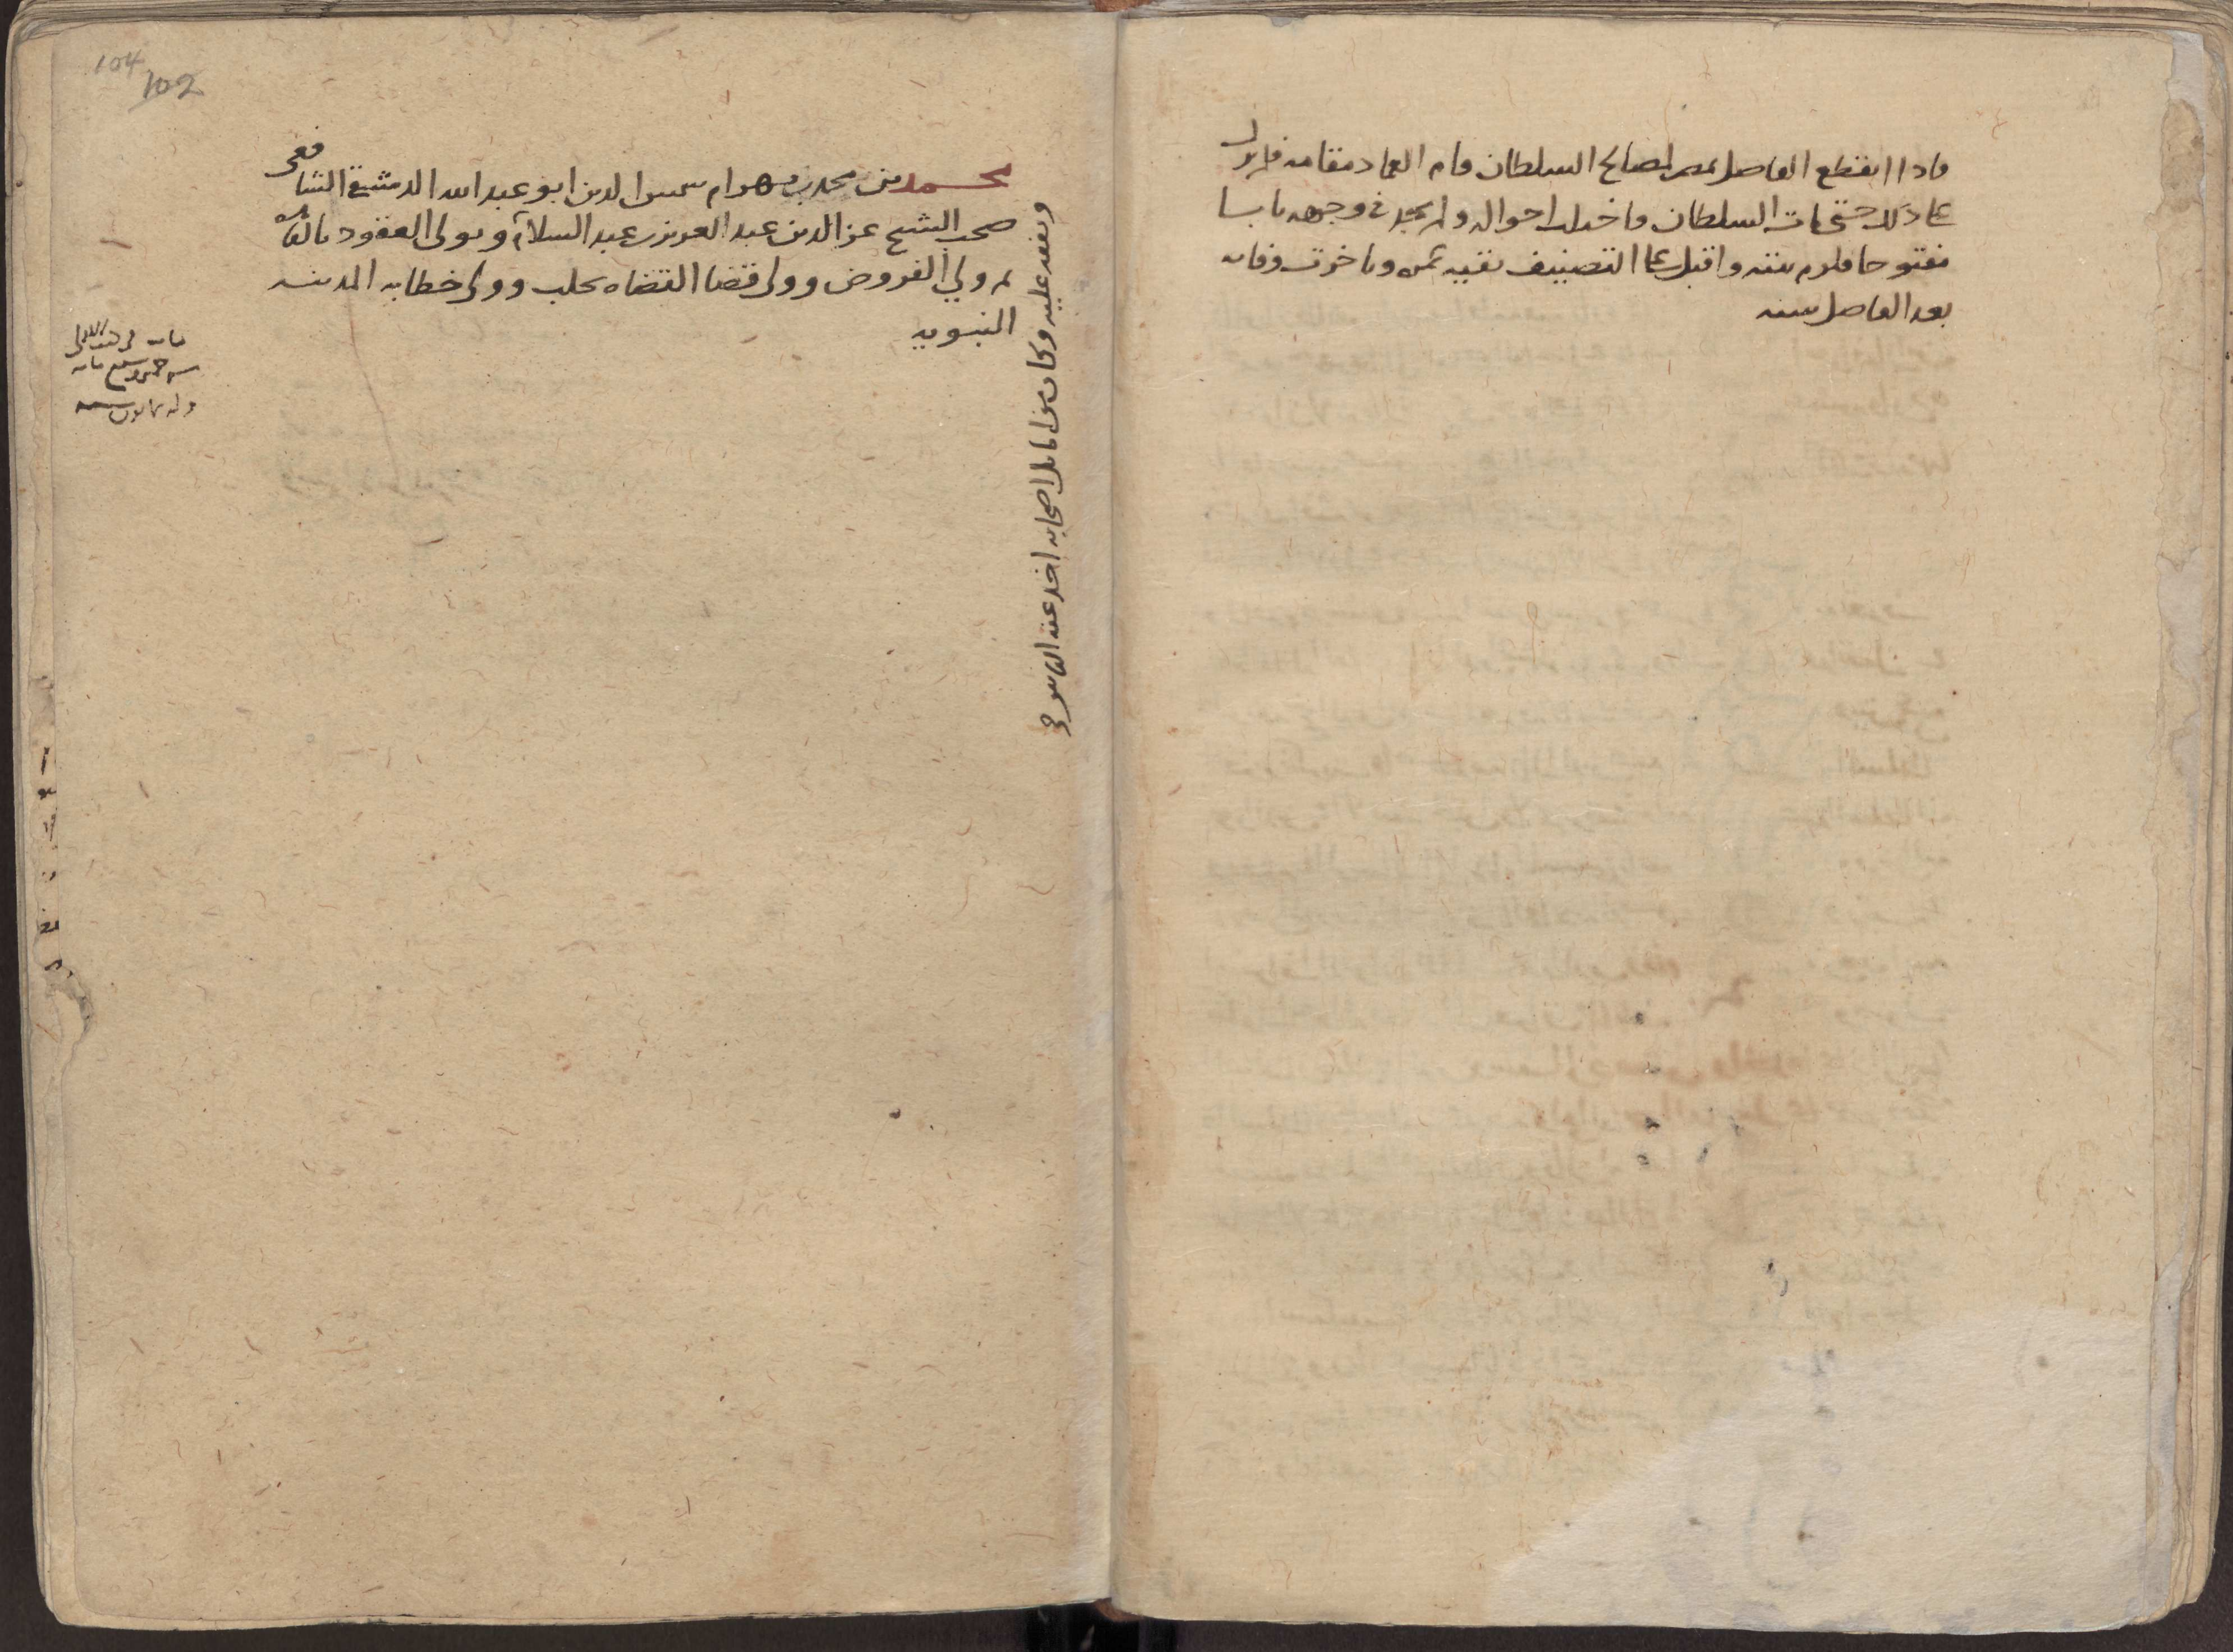 فاذا انقطع الفاضل بمصر لمصالح السلطان قام العماد مقامه فلم يزل
علي ذلك حتي مات السلطان فاختلت احواله ولم يجد في وجهه بابا
مفتوحا فلزم بيته واقبل علي التصنيف بقيه عمره وتاخرت وفاته
بعد الفاضل سنه
104
102
محمد بن محمد بن بهرام شمس الدين ابو عبد الله الدمشقي الشافعي
صحب الشيخ عز الدين عبد العزيز بن عبد السلام وتولي العقود بالقاهره
ثم ولي الفروض وولي قضا القضاه بحلب وولي خطابه المدينه
النبويه
وتفقه عليه وكان من اماثل اصحابه اخذ عنه الناس
مات في جمادي الاولي
سنه خمس وسبع مايه
وله ثمانون سنه